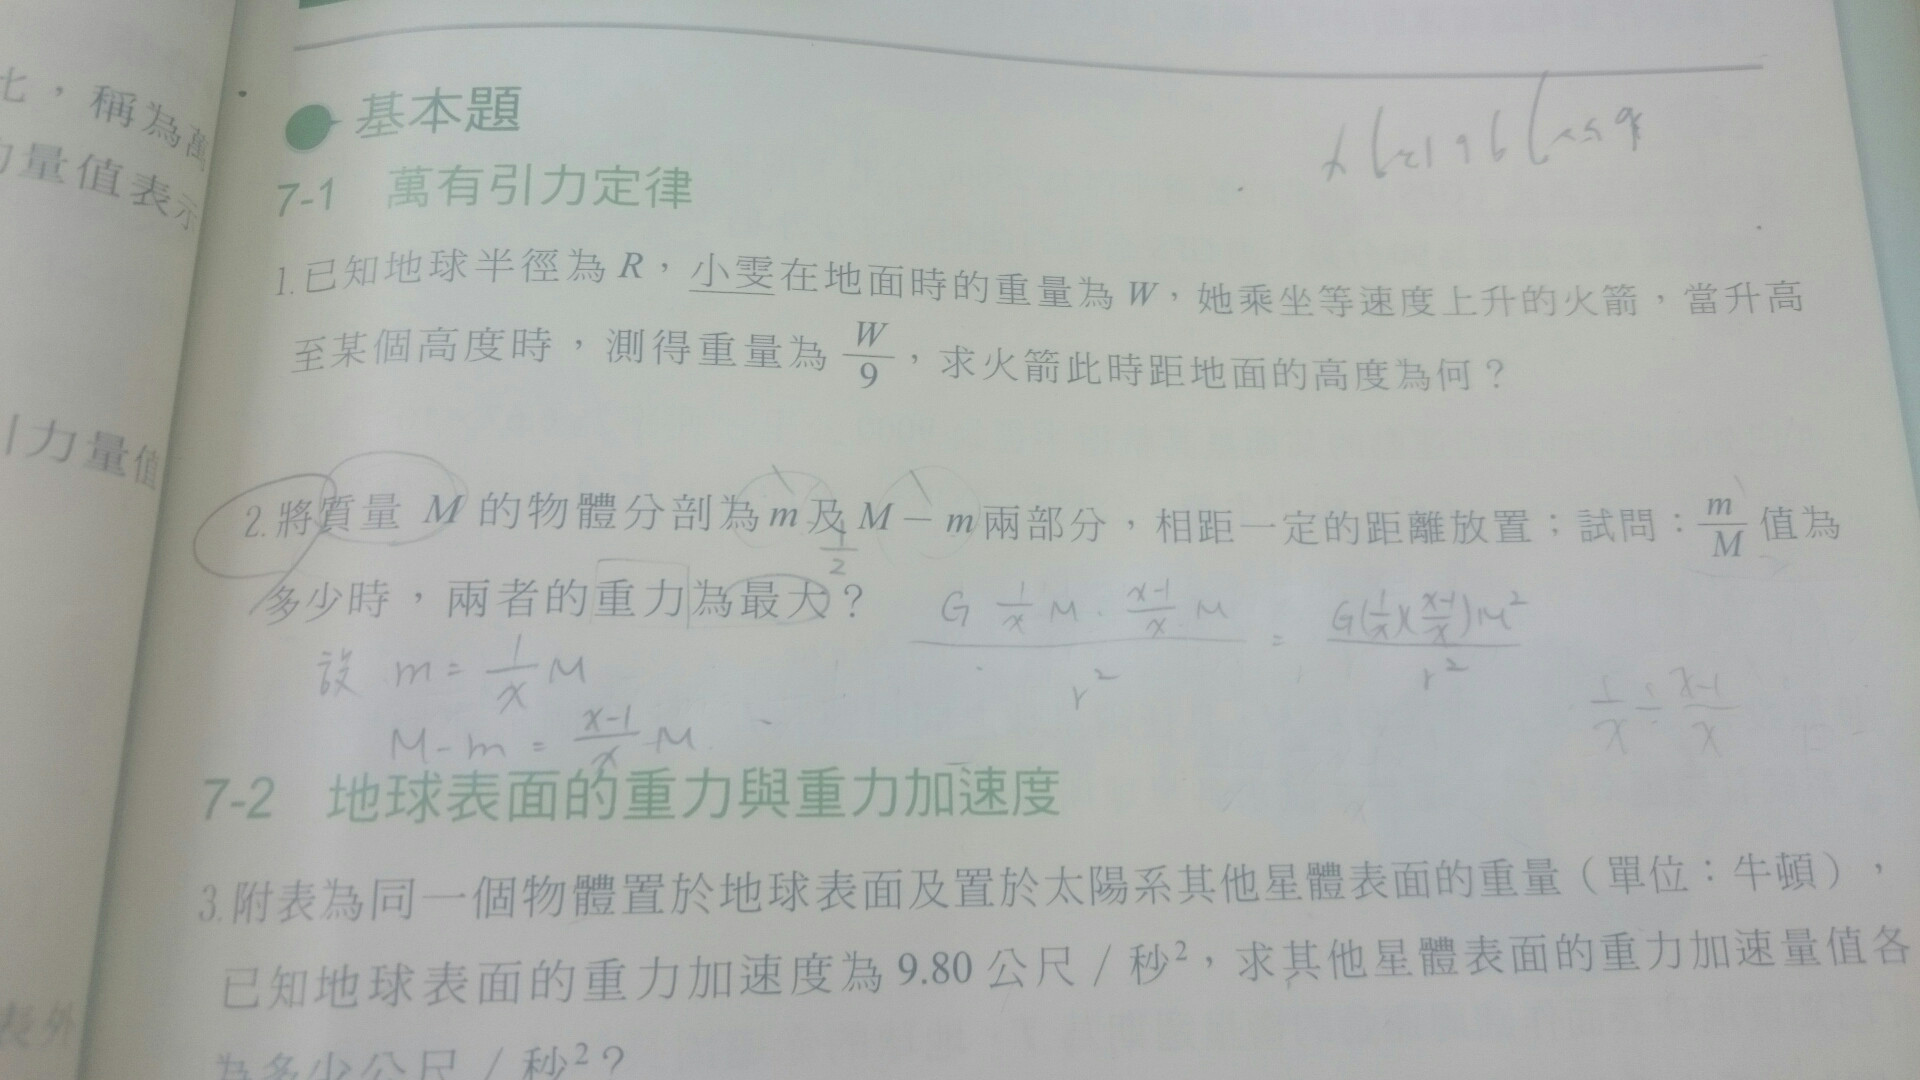 比，稱為萬
力量值表示
引力量值
基本題
7-1 萬有引力定律
1.已知地球半徑為 R，小雯在地面時的重量為 W，她乘坐等速度上升的火箭，當升高
至某個高度時，測得重量為 W/9，求火箭此時距地面的高度為何？
2.將質量 M 的物體分剖為 m 及 M－m 兩部分，相距一定的距離放置；試問：m/M 值為
1/2
多少時，兩者的重力為最大？
G 1/x M · x-1/x M / r² = G(1/x)(x-1/x)M² / r²
設 m = 1/x M
1/x = x-1/x
M-m = x-1/x M
7-2 地球表面的重力與重力加速度
3.附表為同一個物體置於地球表面及置於太陽系其他星體表面的重量（單位：牛頓），
已知地球表面的重力加速度為 9.80 公尺／秒²，求其他星體表面的重力加速量值各
為多少公尺／秒²？